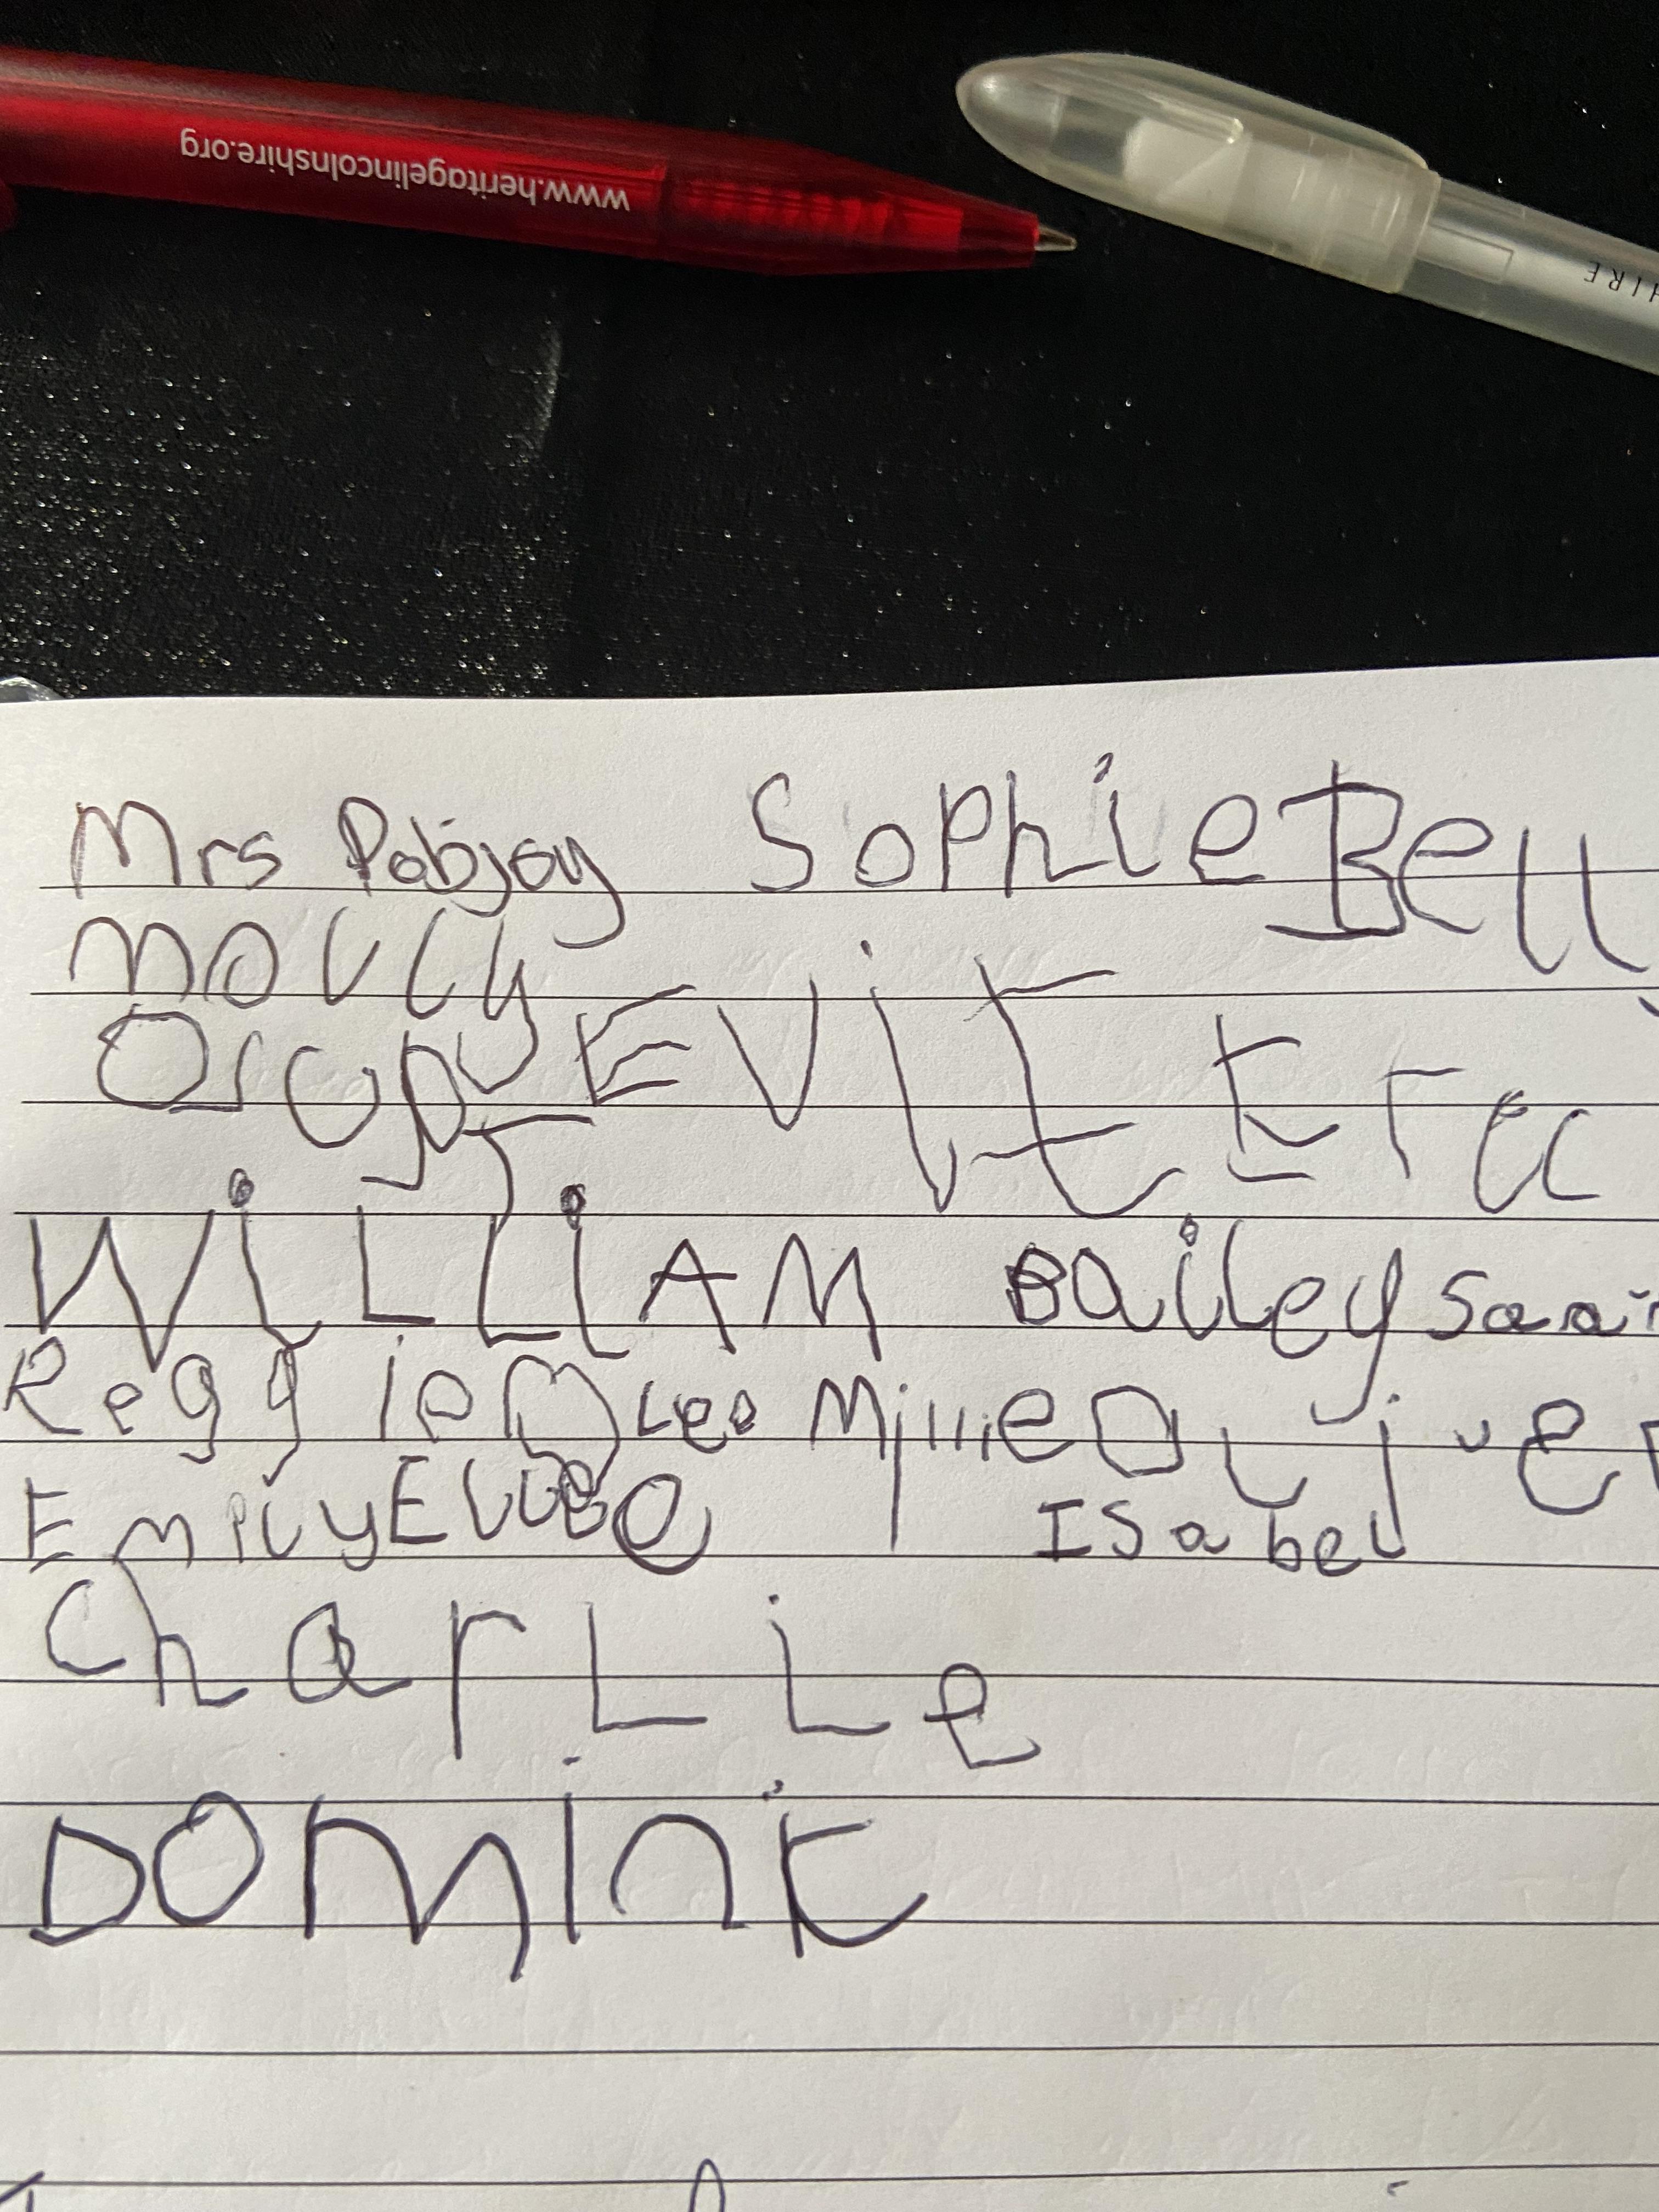 www.heritagelincolnshire.org
HIRE
Mrs Pobjoy Sophie Bell
Molly
WiLLiAM Bailey
Reggie M Leo Millie Oliver
Emily Ellie Isabel
CharLie
DOMinic